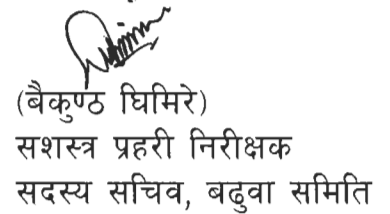 (बैकुण्ठ घिमिरे)
सशस्त्र प्रहरी निरीक्षक
सदस्य सचिव, बढुवा समिति